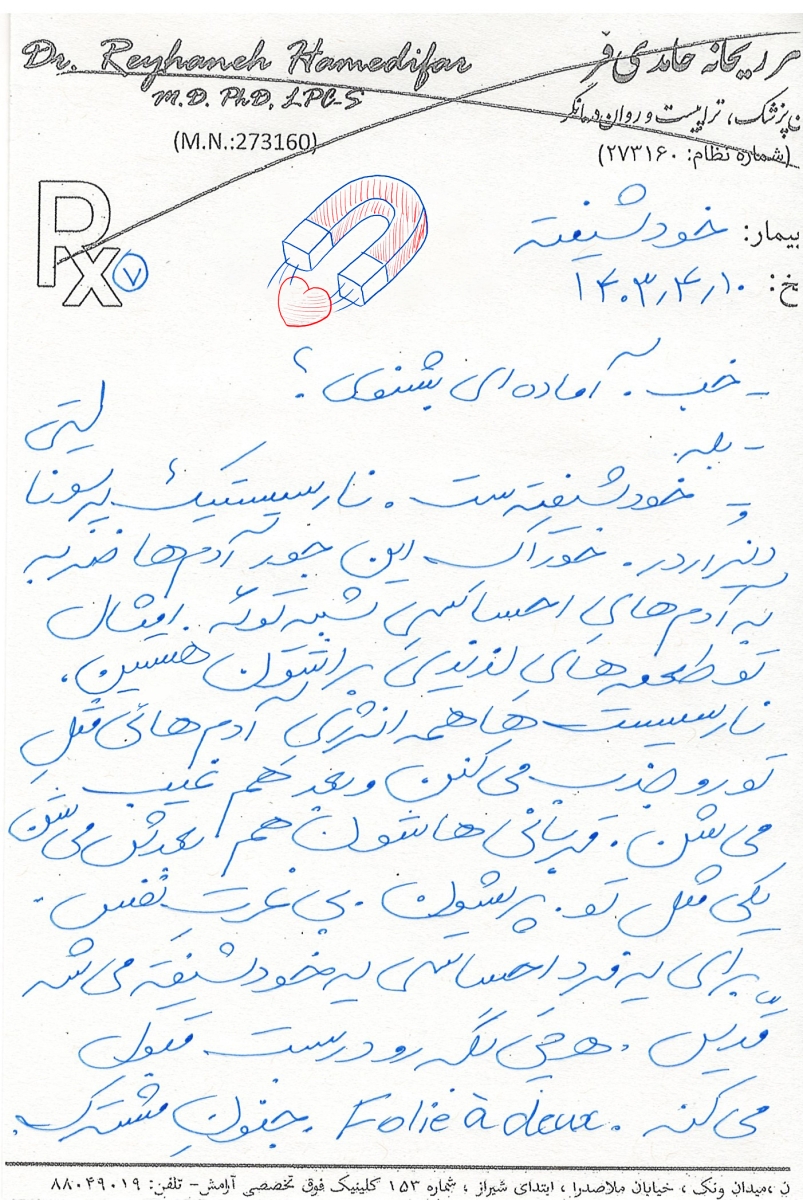 Dr. Reyhaneh Hamedifar
M.D. PhD, LPC-S
(M.N.:273160)
ر ریحانه حامدی فر
ن پزشک، تراپیست و روان درمانگر
(شماره نظام: ۲۷۳۱۶۰)
Rx ۷
بیمار: خودشیفته
خ: ۱۴۰۳٫۴٫۱۰
- خب. آماده‌ای بشنوی؟
- بله.
- خودشیفته‌ست. نارسیستیک پرسونالیتی
دیُزاردر. خوراک این جور آدم‌ها ضربه
به آدم‌هایِ احساسیِ شبه توئه. امثال
تو طعمه‌های لذیذی براشون هستین.
نارسیست‌ها همه انرژیِ آدم‌هائی مثلِ
تو رو جذب می‌کنن و بعد هَم غیب
می‌شن. قربانی‌هاشون هم بعدش می‌شن
یکی مثل تو. پریشون. بی عزت نَفس.
برای یه فرد احساسی یه خودشیفته می‌شه
قدّیس. هرچی بگه رو درست قبول
می‌کنه. Folie à deux. جنونِ مشترک.
ن ،میدان ونک ، خیابان ملاصدرا ، ابتدای شیراز ، شماره ۱۵۳ کلینیک فوق تخصصی آرامش- تلفن: ۸۸۰۴۹۰۱۹